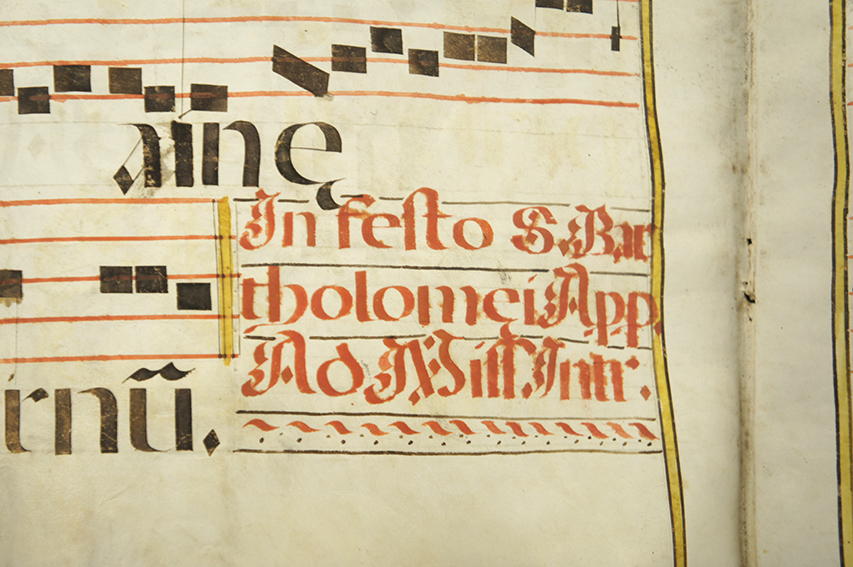 ainę
In festo S. Bar
tholomei App.
Ad Miss. Intr.
rnū.